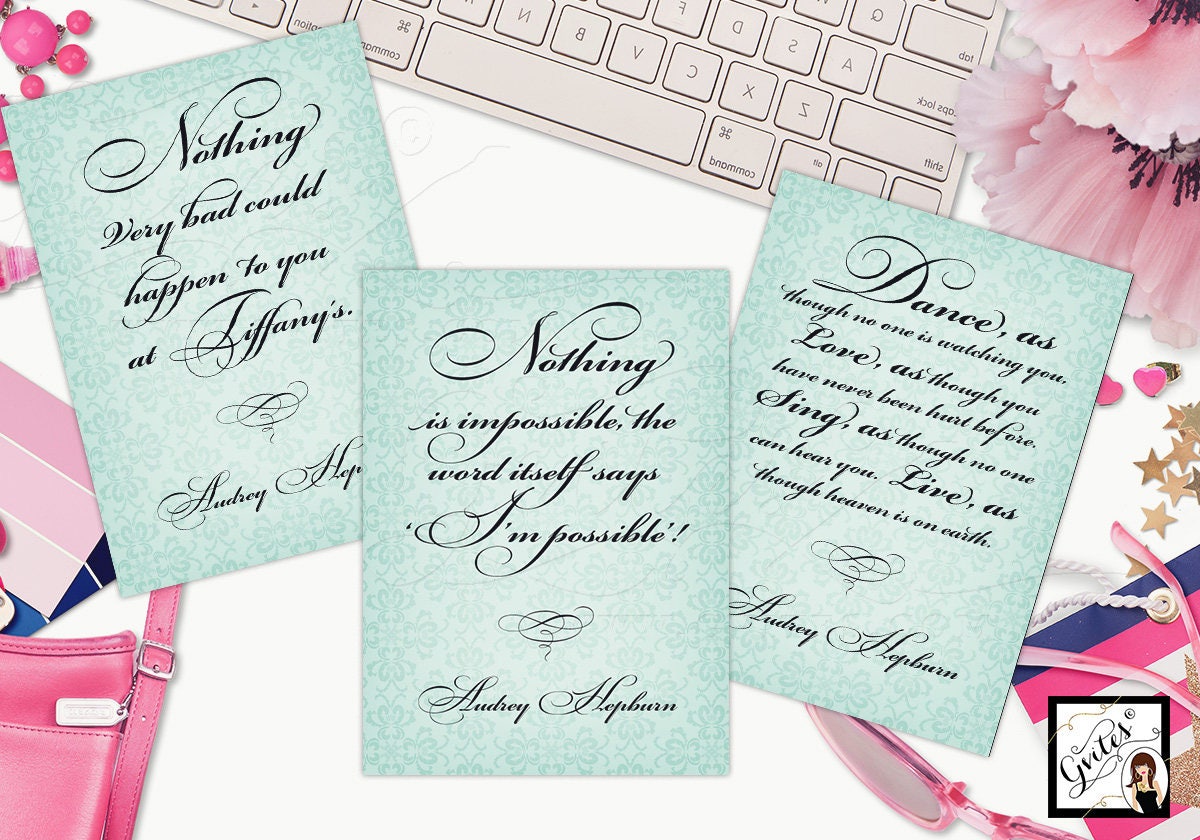 Nothing
Very bad could
happen to you
at Tiffany's.
Audrey Hep
Nothing
is impossible, the
word itself says
'I'm possible'!
Audrey Hepburn
Dance, as
though no one is watching you,
Love, as though you
have never been hurt before.
Sing, as though no one
can hear you. Live, as
though heaven is on earth.
Audrey Hepburn
option
command
N
B
V
C
X
Z
command
alt
shift
caps lock
tab
Q
A
S
D
F
G
COACH
Gvites©